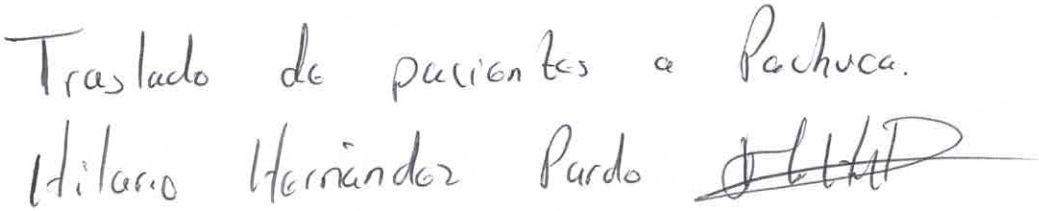 Traslado de pacientes a Pachuca.
Hilario Hernández Pardo